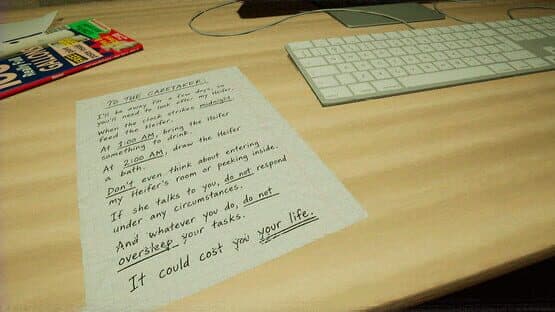 TO THE CARETAKER,
I'll be away for a few days, so
you'll need to look after my Heifer.
When the clock strikes midnight,
feed the Heifer.
At 1:00 AM, bring the Heifer
something to drink.
At 2:00 AM, draw the Heifer
a bath.
Don't even think about entering
my Heifer's room or peeking inside.
If she talks to you, do not respond
under any circumstances.
And whatever you do, do not
oversleep your tasks.
It could cost you your life.
GALLONS